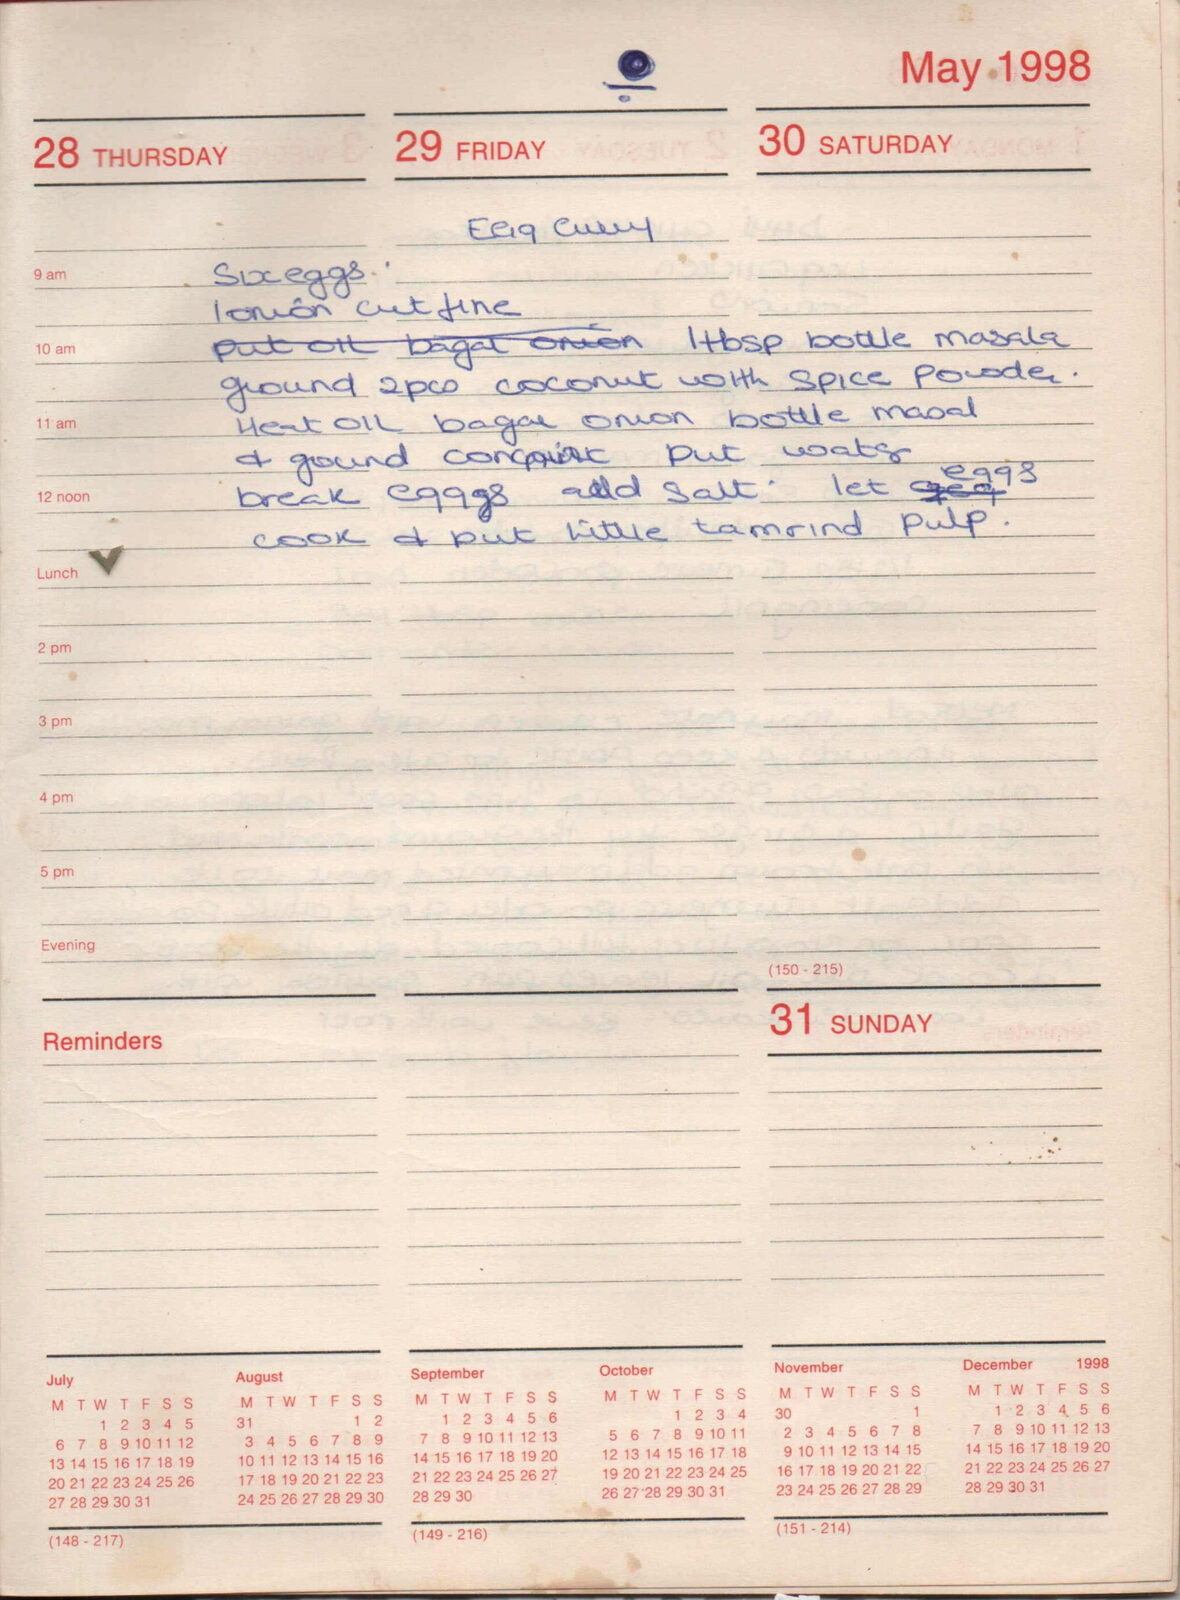 May 1998
28 THURSDAY
29 FRIDAY
30 SATURDAY
Egg Curry
9 am
Six eggs.
1 onion cut fine
10 am
put oil bagar onion 1 tbsp bottle masala
ground 2pcs coconut with spice powder.
11 am
Heat oil bagar onion bottle masal
& gound put water
12 noon
eggs
break egggs add salt. let
cook & put little tamrind pulp.
Lunch
2 pm
3 pm
4 pm
5 pm
Evening
(150 - 215)
Reminders
31 SUNDAY
July
M T W T F S S
1 2 3 4 5
6 7 8 9 10 11 12
13 14 15 16 17 18 19
20 21 22 23 24 25 26
27 28 29 30 31
(148 - 217)
August
M T W T F S S
31 1 2
3 4 5 6 7 8 9
10 11 12 13 14 15 16
17 18 19 20 21 22 23
24 25 26 27 28 29 30
September
M T W T F S S
1 2 3 4 5 6
7 8 9 10 11 12 13
14 15 16 17 18 19 20
21 22 23 24 25 26 27
28 29 30
(149 - 216)
October
M T W T F S S
1 2 3 4
5 6 7 8 9 10 11
12 13 14 15 16 17 18
19 20 21 22 23 24 25
26 27 28 29 30 31
November
M T W T F S S
30 1
2 3 4 5 6 7 8
9 10 11 12 13 14 15
16 17 18 19 20 21 22
23 24 25 26 27 28 29
(151 - 214)
December 1998
M T W T F S S
1 2 3 4 5 6
7 8 9 10 11 12 13
14 15 16 17 18 19 20
21 22 23 24 25 26 27
28 29 30 31